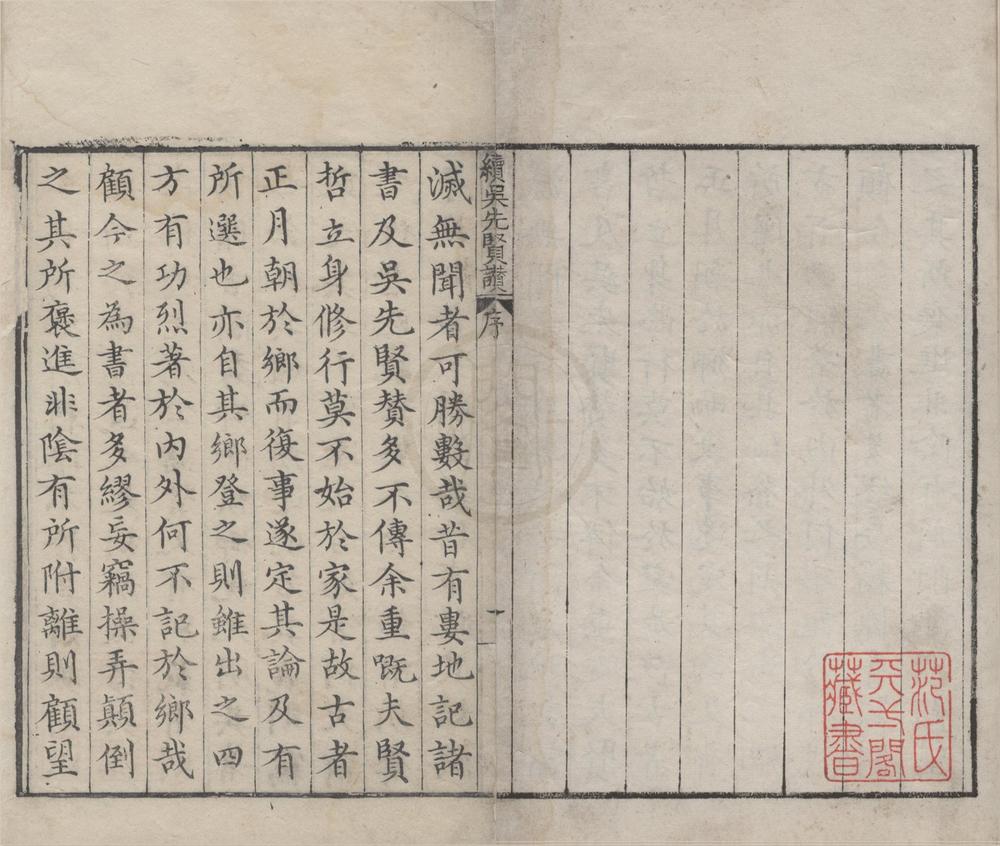 范氏
天一閣
藏書
續吳先賢讃 序
滅無聞者可勝數哉昔有婁地記諸
書及吳先賢賛多不傳余重既夫賢
哲立身修行莫不始於家是故古者
正月朝於鄉而復事遂定其論及有
所選也亦自其鄉登之則雖出之四
方有功烈著於內外何不記於鄉哉
顧今之為書者多繆妄竊操弄顛倒
之其所褒進非陰有所附離則顧望